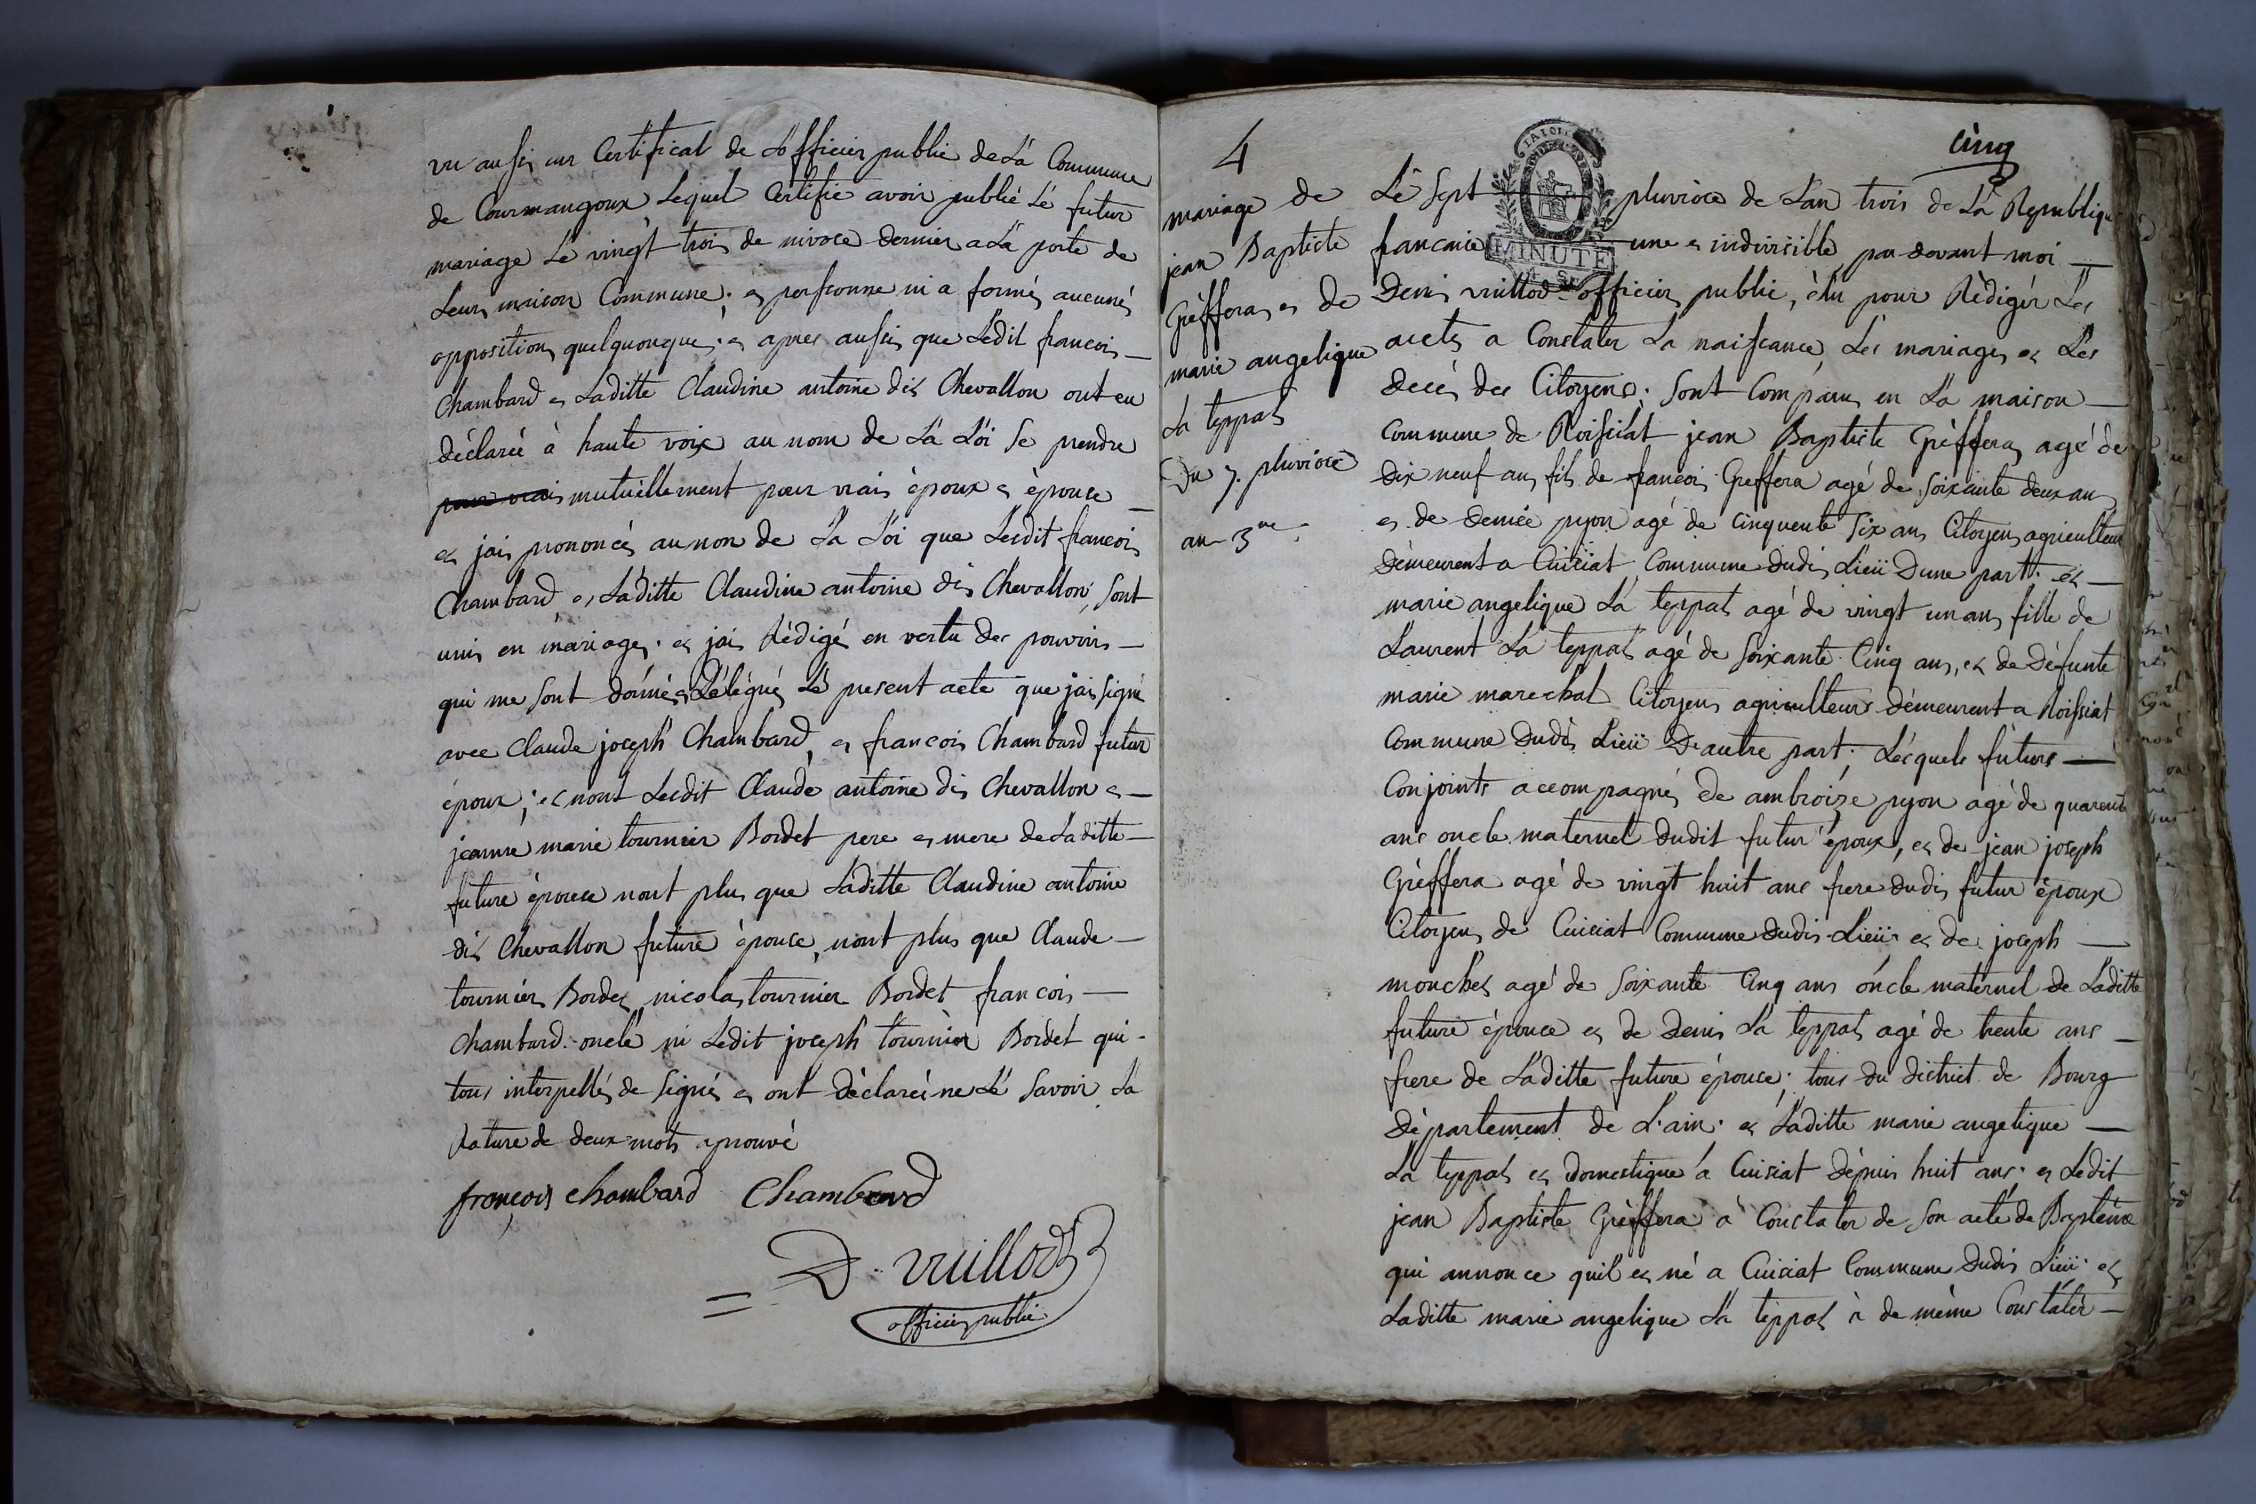 vu aussi un Certificat de Lofficier public de La Commune
de Courmangoux Lequel Certifie avoir publié Lé futur
mariage Lé vingt trois de nivose dernier a La porte de
Leur maison Commune; et personne ni a formés aucunés
opposition quelquonque; et apres aussi que Ledit francois
Chambard et Laditte Claudine antoine dit Chevallon ont eu
déclaré à haute voix au nom de La Loi se prendre
pour vrais mutuellement pour vrais époux et épouse
et jai prononcés au non de La Loi que Lesdit francois
Chambard et Laditte Claudine antoine dit Chevallon sont
unis en mariage; et jai Rédigé en vertu des pouvoirs
qui me sont donnés et Délégués Lé present acte que jai signé
avec Claude joseph Chambard, et francois Chambard futur
époux; et nont Lesdit Claude antoine dit Chevallon et
jeanne marie tournier Bordet pere et mere de Laditte
future épouse nont plus que Laditte Claudine antoine
dit Chevallon future épouse, nont plus que Claude
tournier Bordet, nicolas tournier Bordet francois
Chambard oncle ni Ledit joseph tournier Bordet qui
tous interpellés de signés et ont déclarés ne Lé savoir La
Rature de deux mots aprouvé
françois chambard Chambard
D. vuillod
officier public
4
cinq
mariage de
jean Baptiste
Gréffera et de
marie angelique
La teppat
Du 7. pluviose
an 3me
LA LOI
MINUTE
Lé Sept pluviose de Lan trois de La Republique
francaise une et indivisible par devant moi
Denis vuillod officier public, élu pour Rédigér Les
actes a Constater La naissance, Les mariages et Les
decés des Citoyens; Sont Comparus en La maison
Commune de Roissiat jean Baptiste Gréffera agé de
dix neuf ans fils de francois Greffera agé de soixante deux ans
et de Denise pyon agé de Cinquente six ans Citoyens agriculteurs
Demeurent a Cuisiat Commune dudit Lieü Dune part; et
marie angelique La teppat agé de vingt un ans fille de
Laurent La teppat agé de soixante Cinq ans, et de Défunte
marie marechal Citoyens agriculteurs démeurent a Roissiat
Commune dudit Lieü D'autre part; Lésquels futurs
Conjoints accompagnés de ambroise pyon agé de quarente
ans oncle maternel dudit futur époux, et de jean joseph
Gréffera agé de vingt huit ans frere dudit futur époux
Citoyens de Cuisiat Commune dudit Lieü et de joseph
monchet agé de soixante Cinq ans óncle maternel de Laditte
future épouse et de Denis La teppat agé de trente ans
frere de Laditte future épouse; tous du district de Bourg
Département de L'ain; et Laditte marie angelique
La teppat et domestique a Cuisiat Dépuis huit ans; et Ledit
jean Baptiste Gréffera à Constater de son acté de Baptéme
qui annonce quil et né a Cuisiat Commune dudit Lieü; et
Laditte marie angelique La teppat à de même Constatér